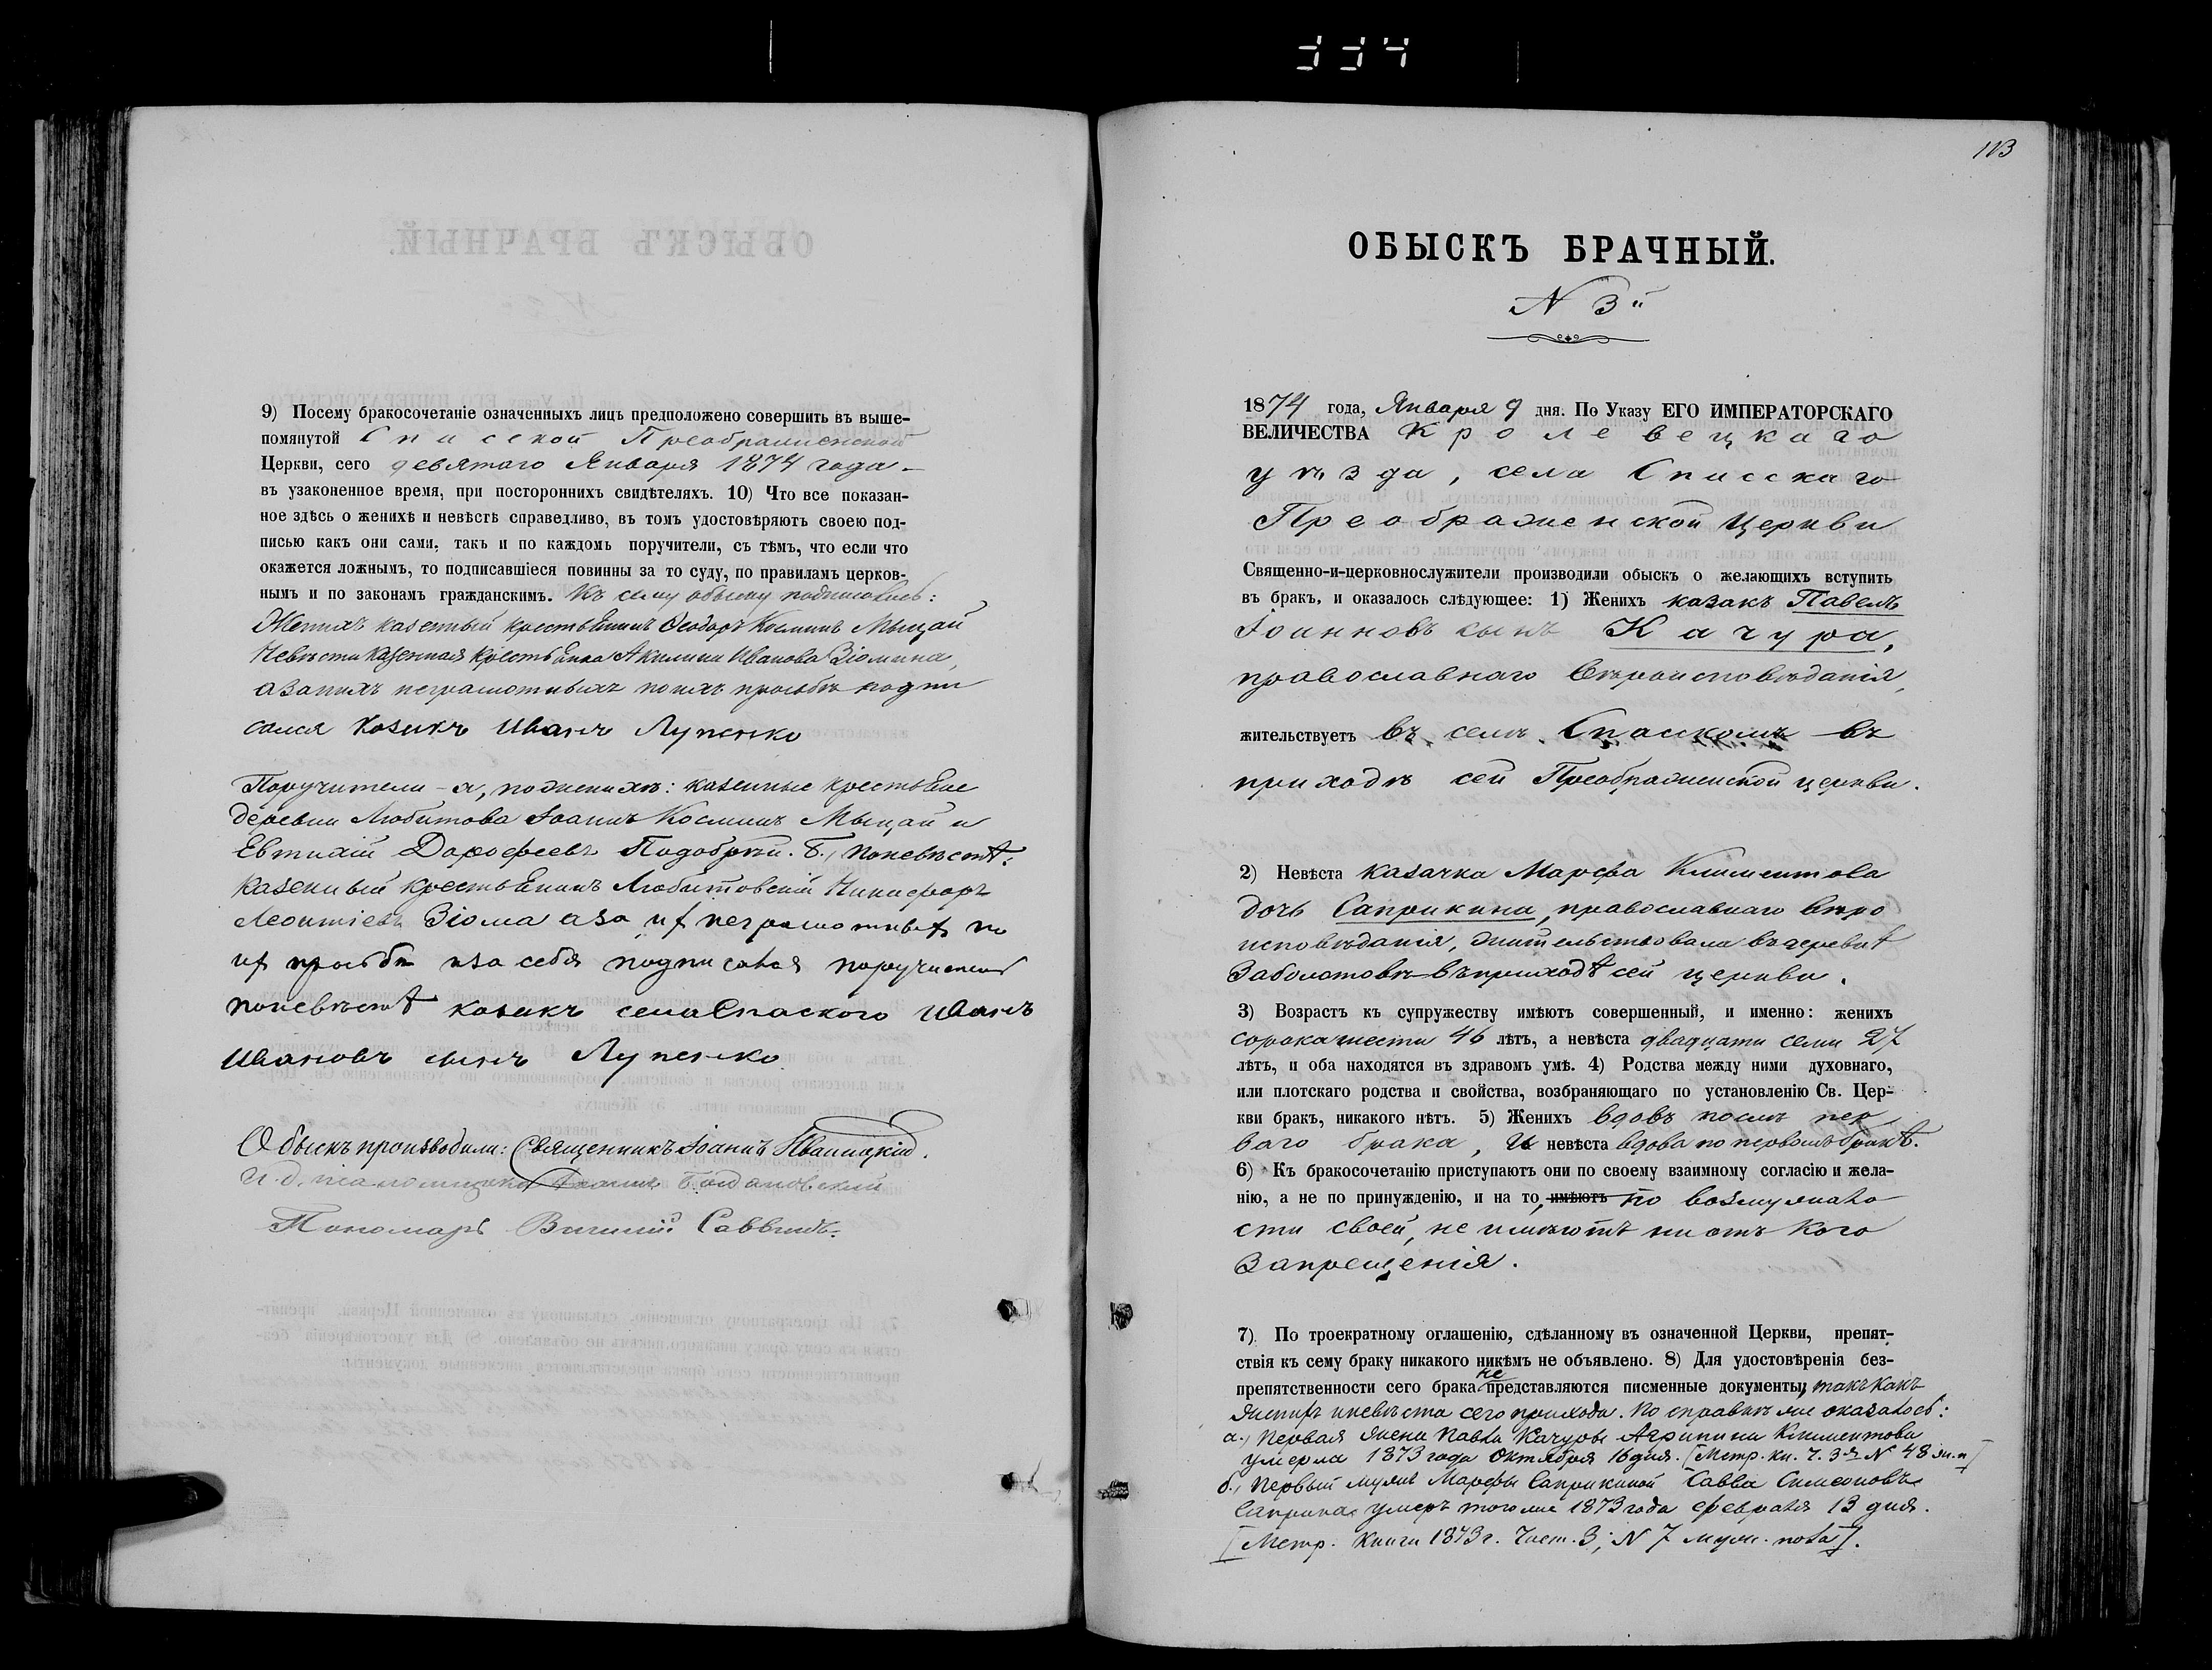 334
9) Посему бракосочетаніе означенныхъ лицъ предположено совершить въ выше-
помянутой Спасской Преображенской
Церкви, сего девятаго Января 1874 года –
въ узаконенное время, при постороннихъ свидѣтеляхъ. 10) Что все показан-
ное здѣсь о женихѣ и невѣстѣ справедливо, въ томъ удостовѣряютъ своею под-
писью какъ они сами, такъ и по каждомъ поручители, съ тѣмъ, что если что
окажется ложнымъ, то подписавшіеся повинны за то суду, по правиламъ церков-
нымъ и по законамъ гражданскимъ. Къ сему обыску подписались:
Женихъ казенный крестьянинъ Ѳеодоръ Косминъ Мыцай
Невѣста казенная крестьянка Акилина Иванова Зіомина,
а за нихъ неграмотныхъ по ихъ прозьбѣ подпи
сался козакъ Иванъ Лупенко
Поручители – а, по женихѣ: казенные крестьяне
деревни Любитова Іоаннъ Косминъ Мыцай и
Евтихій Дорофеевъ Подобрѣй. б., по невѣстѣ:
казенный крестьянинъ Любитовскій Никифоръ
Леонтіевъ Зіома а за их неграмотных по
их прозьбѣ и за себя подписался поручитель
по невѣстѣ козакъ села Спаского Иванъ
Ивановъ сынъ Лупенко
Обыскъ производили: Священникъ Іоаннъ Иваницкій.
И. д. псаломщика Богдановскій
Пономарь Василій Саввичъ.
113
ОБЫСКЪ БРАЧНЫЙ.
N 3й
1874 года, Января 9 дня. По Указу ЕГО ИМПЕРАТОРСКАГО
ВЕЛИЧЕСТВА Кролевецкаго
уѣзда, села Спасскаго
Преображенской Церкви
Священно-и-церковнослужители производили обыскъ о желающихъ вступить
въ бракъ, и оказалось слѣдующее: 1) Женихъ казакъ Павелъ
Іоанновъ сынъ Качура,
православнаго вѣроисповѣданія,
жительствуетъ въ селѣ Спасскомъ въ
приходѣ сей Преображенской церкви.
2) Невѣста казачка Марфа Климентова
дочь Саприкина, православнаго вѣро
исповѣданія, жительствовала въ деревнѣ
Заболотовѣ въ приходѣ сей церкви.
3) Возрастъ къ супружеству имѣютъ совершенный, и именно: женихъ
сорока шести 46 лѣтъ, а невѣста двадцати семи 27
лѣтъ, и оба находятся въ здравомъ умѣ. 4) Родства между ними духовнаго,
или плотскаго родства и свойства, возбраняющаго по установленію Св. Цер-
кви бракъ, никакого нѣтъ. 5) Женихъ вдовъ послѣ пер
ваго брака, и невѣста вдова по первомъ бракѣ.
6) Къ бракосочетанію приступаютъ они по своему взаимному согласію и жела-
нію, а не по принужденію, и на то, имѣютъ по возмужало
сти своей, не имѣютъ ни отъ кого
запрещенія.
7) По троекратному оглашенію, сдѣланному въ означенной Церкви, препят-
ствія къ сему браку никакого никѣмъ не объявлено. 8) Для удостовѣренія без-
препятственности сего брака не представляются писменные документы, такъ какъ
жених и невѣста сего прихода. По справкѣ же оказалось:
а., Первая жена Павла Качуры Агрипина Климентова
умерла 1873 года Октября 16 дня. [Метр. кн. Ч. 3я N 48 ж. п]
б., Первый мужъ Марфы Саприкиной Савва Симеоновъ
Саприка умеръ того же 1873 года февраля 13 дня.
[Метр. Книги 1873 г. Част. 3; N 7 муж. пола].